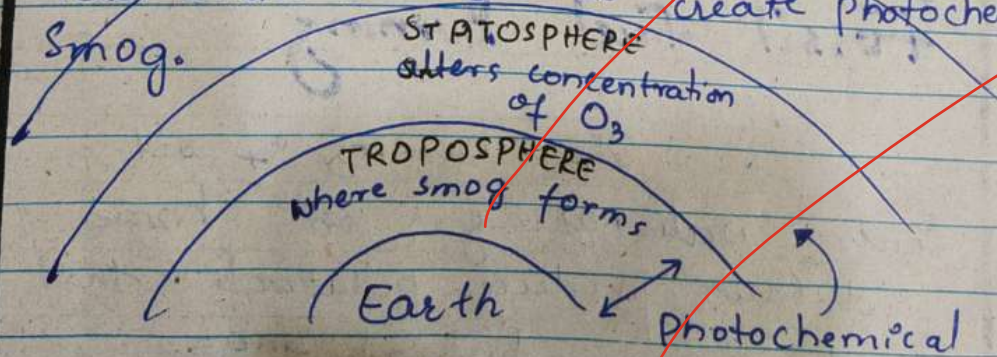 create photoche
Smog.
STATOSPHERE
alters concentration
of O3
TROPOSPHERE
where smog forms
Earth
Photochemical